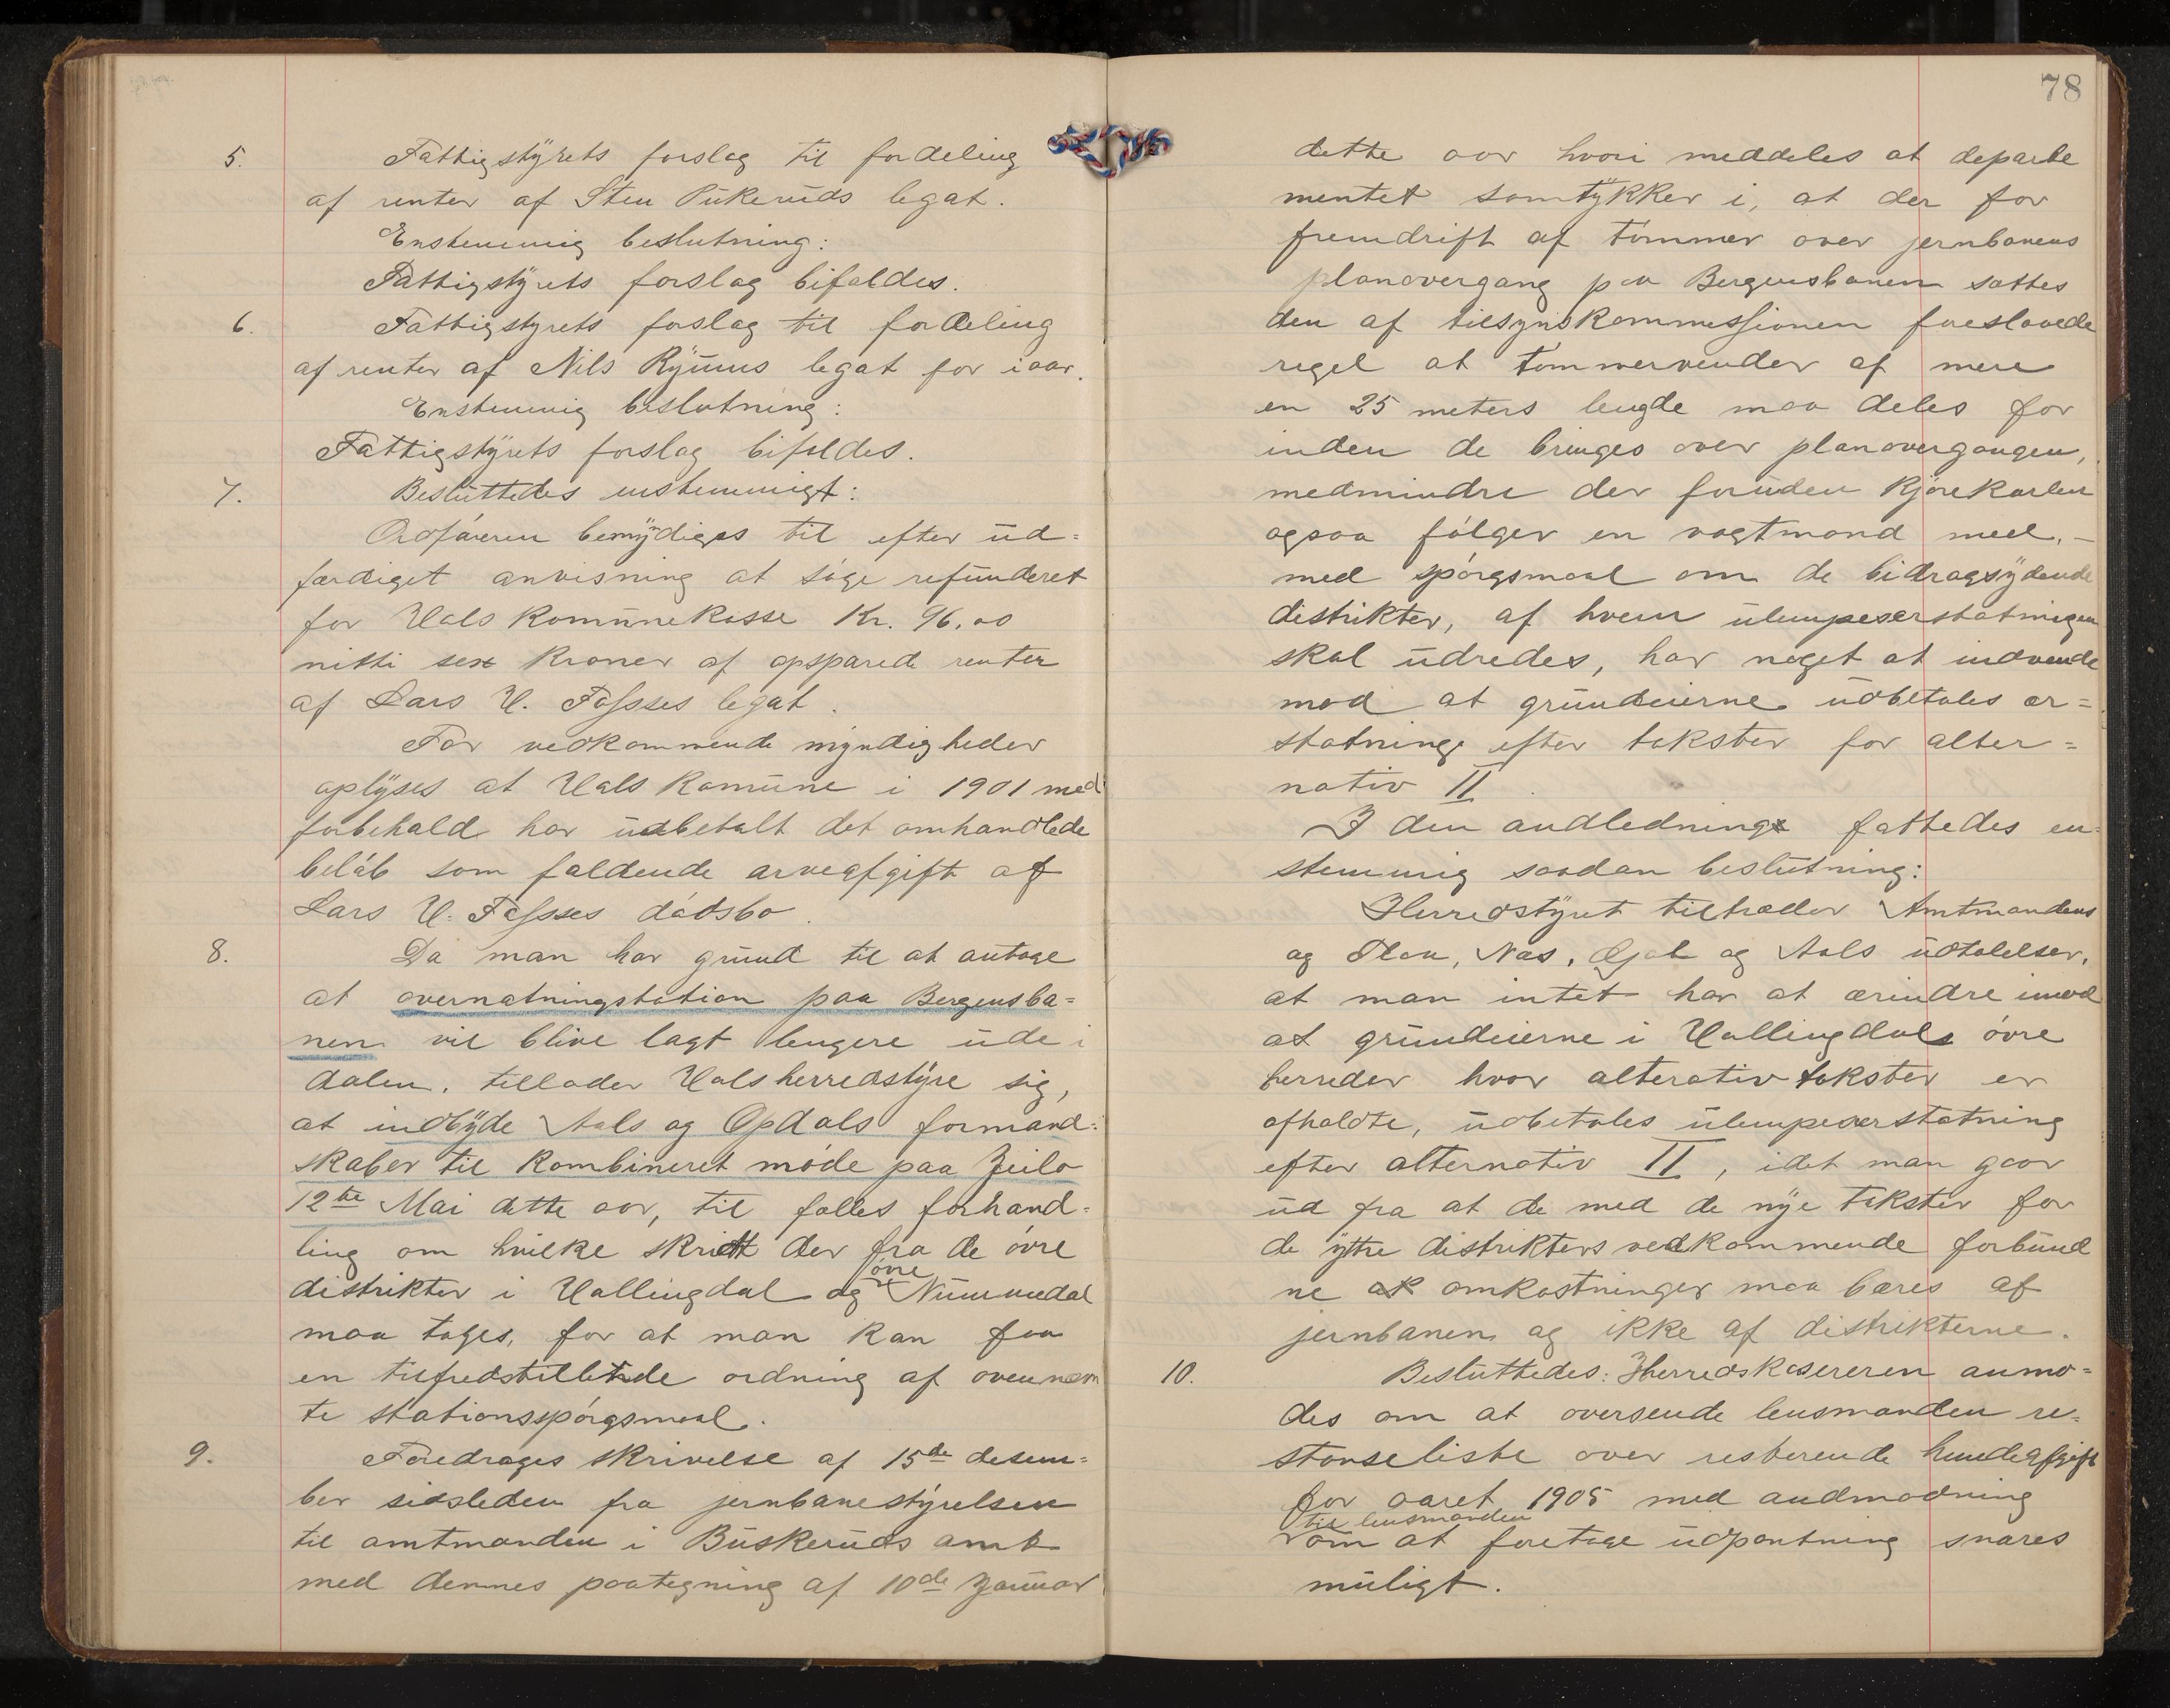 5. Fattigstyrets forslag til fordeling
af renter af Sten Pukeruds legat.
Enstemmig beslutning:
Fattigstyrets forslag bifaldes.
6. Fattigstyrets forslag til fordeling
af renter af Nils legat for iaar.
Enstemmig beslutning:
Fattigstyrets forslag bifaldes.
7. Besluttedes enstemmigt:
Ordføreren bemyndiges til efter ud=
færdiget anvisning at søge refunderet
for Hols Komunekasse Kr. 96.00
nitti sex Kroner af opsparede renter
af Lars H. Fossses legat.
For vedkommende myndigheder
oplyses at Hols Komune i 1901 med
forbehold har udbetalt det omhandlede
beløb som faldende arveafgift af
Lars H. Fossses dødsbo.
8. Da man har grund til at antage
at overnatningstation paa Bergensba=
nen vil blive lagt lengere ude i
dalen, tillader Hols herredstyre sig,
at indbyde Aals og Opdals formand=
skaber til Kombineret møde paa Jeilo
12te Mai dette aar, til fælles forhand=
ling om hvilke skridt der fra de øvre
distrikter i Hallingdal og øvre Nummedal
maa tages, for at man kan faa
en tilfredstillende ordning af ovennevn
te stationsspørgsmaal.
9. Foredrages skrivelse af 15de desem=
ber sidsleden fra jernbanestyrelsen
til amtmanden i Buskeruds amt
med dennes paategning af 10de Januar
78
dette aar hvori meddeles at departe
mentet samtykker i, at der for
fremdrift af tømmer over jernbanens
planovergang paa Bergensbanen sættes
den af tilsynskommissionen foreslaaede
regel at tømmervender af mere
en 25 meters lengde maa deles for
inden de bringes over planovergangen,
medmindre der foruden Kjørekarlen
ogsaa følger en vagtmand med, –
med spørgsmaal om de bidragsydende
distrikter, af hvem ulempeserstatningen
skal udredes, har noget at indvende
mod at grundeierne udbetales er=
statning efter takster for alter=
nativ II.
I den andledning fattedes en=
stemmig saadan beslutning:
Herredstyret tiltræder Amtmandens
og Flaa, Næs, Gjøl og Aals udtalelser,
at man intet har at ærindre imod
at grundeierne i Hallingdals øvre
herreder hvor alterativ takster er
afholdte, udbetales ulempeserstatning
efter alternativ II, idet man gaar
ud fra at de med de nye takster for
de ytre distrikters vedkommende forbund
ne omkostninger maa bæres af
jernbanen og ikke af distrikterne.
10. Besluttedes: Herredskasereren anmo=
des om at oversende lensmanden re=
stanseliste over resterende hundeafgift
for aaret 1905 med andmodning
til lensmanden
om at foretage udpantning snares
muligt.